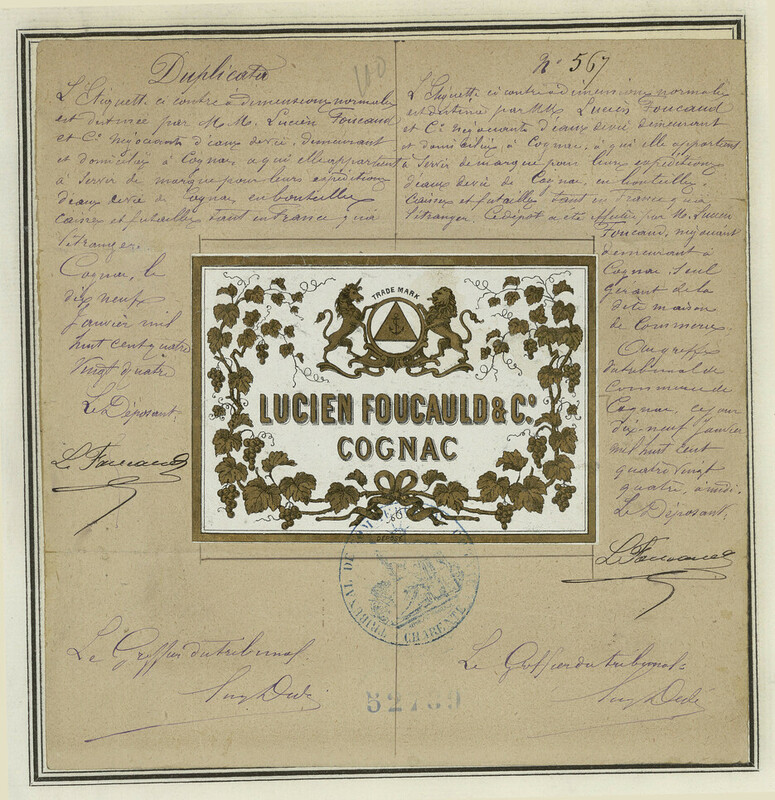 Duplicata
L'Etiquette ci contre à dimensions normales
est destinée par M. M. Lucien Foucaud
et Cie négociants d'eaux de vie, demeurant
et domiciliés à Cognac, à qui elle appartient
à servir de marque pour leurs expéditions
d'eaux de vie de Cognac, en bouteilles
caisses et futailles tant en France qu'à
l'étranger.
Cognac, le
dix neuf
Janvier mil
huit cent quatre
vingt quatre
Le Déposant.
L Foucaud
N° 567
L'Etiquette ci contre à dimensions normales
est destinée par MM Lucien Foucaud
et Cie négociants d'eaux de vie demeurant
et domiciliés à Cognac, à qui elle appartient
à servir de marque pour leurs expéditions
d'eaux de vie de Cognac, en bouteilles,
caisses et futailles tant en France qu'à
l'étranger. Ce dépôt a été effectué par M. Lucien
Foucaud, négociant
demeurant à
Cognac. Seul
gérant de la
dite maison
de Commerce,
Au greffe
du tribunal de
Commerce de
Cognac, ce jour
dix neuf Janvier
mil huit cent
quatre vingt
quatre, à midi.
Le Déposant.
L Foucaud
TRADE MARK
LUCIEN FOUCAULD & Co.
COGNAC
TRIBUNAL DE
CHARENTE
Le Greffier du tribunal.
Le Greffier du tribunal.